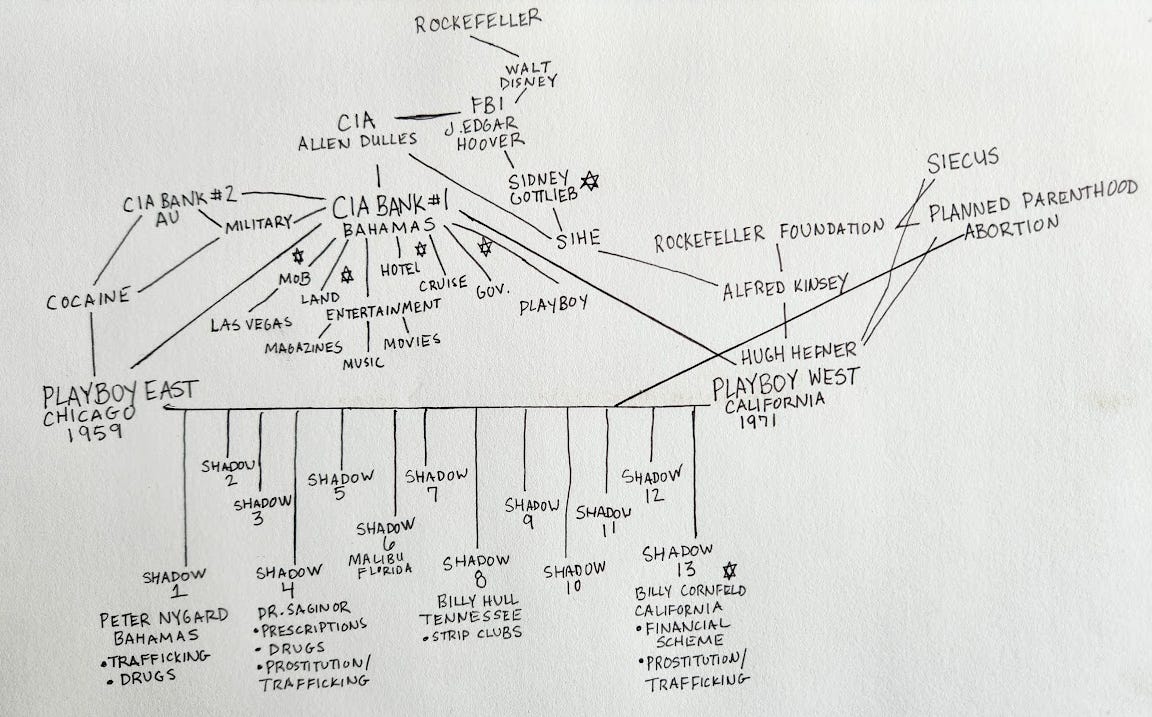 ROCKEFELLER
WALT
DISNEY
FBI
J. EDGAR
HOOVER
CIA
ALLEN DULLES
SIDNEY
GOTTLIEB
SIHE
CIA BANK #2
AU
MILITARY
COCAINE
CIA BANK #1
BAHAMAS
MOB
LAS VEGAS
LAND
ENTERTAINMENT
MAGAZINES
MUSIC
MOVIES
HOTEL
CRUISE
GOV.
PLAYBOY
SIECUS
ROCKEFELLER FOUNDATION
PLANNED PARENTHOOD
ABORTION
ALFRED KINSEY
HUGH HEFNER
PLAYBOY WEST
CALIFORNIA
1971
PLAYBOY EAST
CHICAGO
1959
SHADOW
1
PETER NYGARD
BAHAMAS
•TRAFFICKING
• DRUGS
SHADOW
2
SHADOW
3
SHADOW
4
DR. SAGINOR
•PRESCRIPTIONS
• DRUGS
•PROSTITUTION/
TRAFFICKING
SHADOW
5
SHADOW
6
MALIBU
FLORIDA
SHADOW
7
SHADOW
8
BILLY HULL
TENNESSEE
•STRIP CLUBS
SHADOW
9
SHADOW
10
SHADOW
11
SHADOW
12
SHADOW
13
BILLY CORNFELD
CALIFORNIA
• FINANCIAL
SCHEME
•PROSTITUTION/
TRAFFICKING